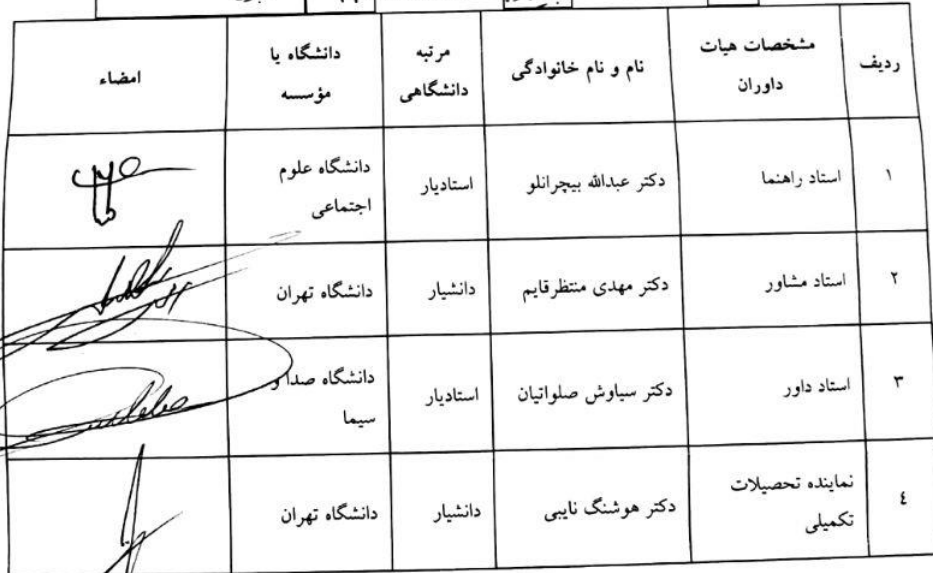 ردیف
مشخصات هیات
داوران
نام و نام خانوادگی
مرتبه
دانشگاهی
دانشگاه یا
مؤسسه
امضاء
۱
استاد راهنما
دکتر عبدالله بیچرانلو
استادیار
دانشگاه علوم
اجتماعی
۲
استاد مشاور
دکتر مهدی منتظرقایم
دانشیار
دانشگاه تهران
۳
استاد داور
دکتر سیاوش صلواتیان
استادیار
دانشگاه صدا و
سیما
٤
نماینده تحصیلات
تکمیلی
دکتر هوشنگ نایبی
دانشیار
دانشگاه تهران